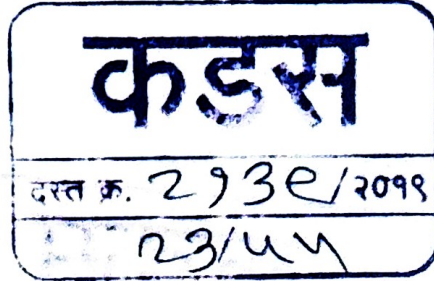 कडस
दस्त क्र. २१३९/२०१९
२३/५५